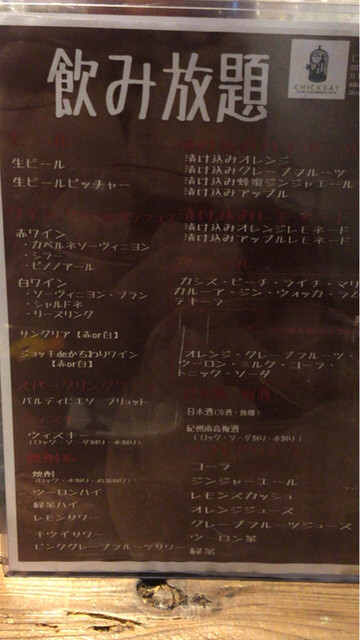 飲み放題
CHICKEAT
生ビール
生ビールピッチャー
赤ワイン
・カベルネソーヴィニヨン
・シラー
・ピノノアール
白ワイン
・ソーヴィニヨン・ブラン
・シャルドネ
・リースリング
サングリア【赤or白】
ジョッキdeかちわりワイン
【赤or白】
スパークリングワイン
バルディビエソ ブリュット
ウィスキー
(ロック・ソーダ割り・水割り)
焼酎
(ロック・水割り・お湯割り)
ウーロンハイ
緑茶ハイ
レモンサワー
キウイサワー
ピンクグレープフルーツサワー
漬け込みオレンジ
漬け込みグレープフルーツ
漬け込み蜂蜜ジンジャエール
漬け込みアップル
漬け込みオレンジレモネード
漬け込みアップルレモネード
カシス・ピーチ・ライチ・マリ
カルーア・ジン・ウォッカ・ラム
テキーラ
オレンジ・グレープフルーツ・
ウーロン・ミルク・コーラ・
トニック・ソーダ
日本酒(冷酒・熱燗)
紀州南高梅酒
(ロック・ソーダ割り・水割り)
コーラ
ジンジャーエール
レモンスカッシュ
オレンジジュース
グレープフルーツジュース
ウーロン茶
緑茶